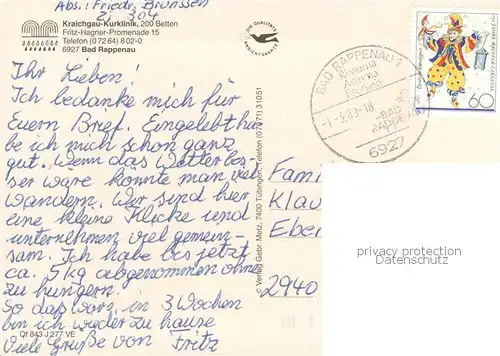 Abs.: Friedr. Brunssen
Zi. 304
Kraichgau-Kurklinik, 200 Betten
Fritz-Hagner-Promenade 15
Telefon (0 72 64) 8 02-0
6927 Bad Rappenau
DIE QUALITÄTS
ANSICHTSKARTE
BAD RAPPENAU 1
Rheuma
Asthma
-1.-3.83-18
BAD
RAPPENAU
6927
60
Ihr Lieben!
Ich bedanke mich für
Euern Brief. Eingelebt ha
be ich mich schon ganz
gut. Wenn das Wetter bes-
ser wäre könnte man viel
wandern. Wir sind hier
eine kleine Klicke und
unternehmen viel gemein-
sam. Ich habe bis jetzt
ca. 5 kg abgenommen ohne
zu hungern.
So das wars, in 3 Wochen
bin ich wieder zu hause
Viele Grüße von Fritz
Qf 843 J 277 VE
© Verlag Gebr. Metz, 7400 Tübingen, Telefon (07071) 31051
Fami
Klau
Eber
2940
privacy protection
Datenschutz